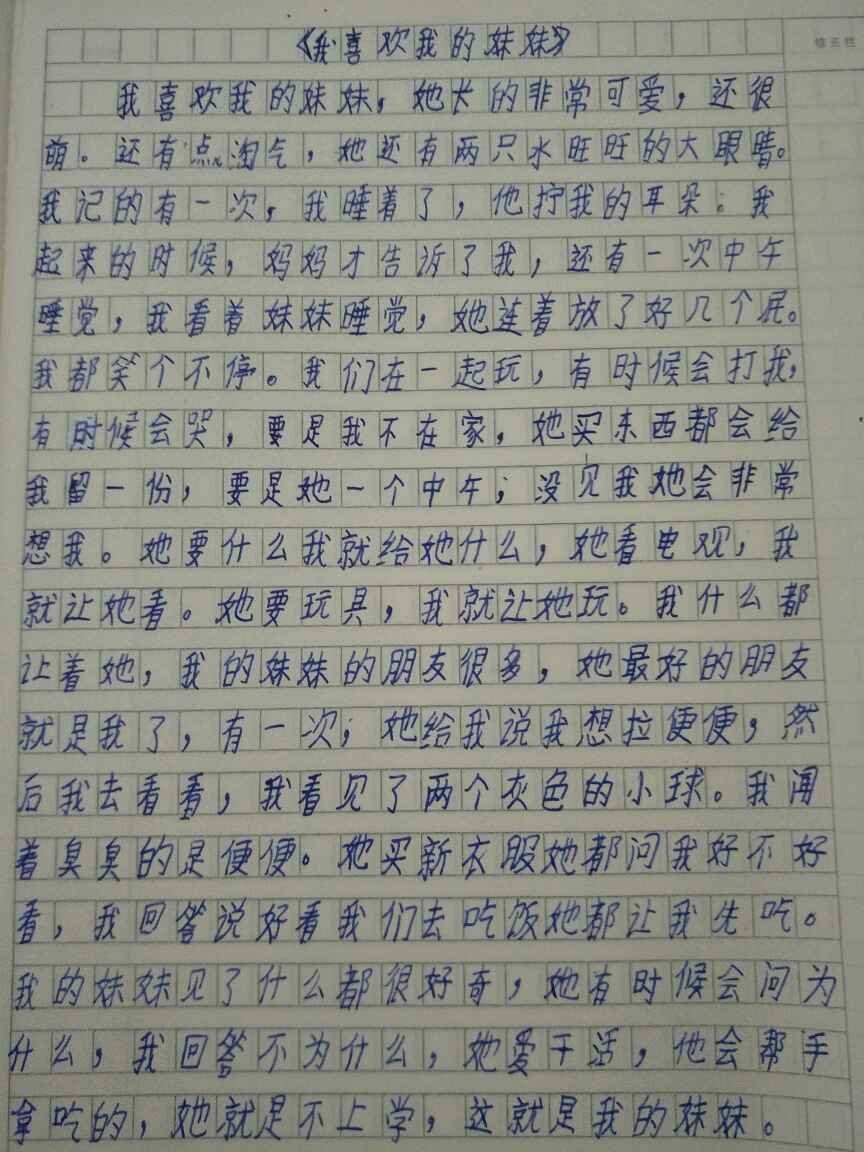 《我喜欢我的妹妹》
我喜欢我的妹妹，她长的非常可爱，还很
萌。还有点淘气，她还有两只水旺旺的大眼睛。
我记的有一次，我睡着了，他拧我的耳朵。我
起来的时候，妈妈才告诉了我，还有一次中午
睡觉，我看着妹妹睡觉，她连着放了好几个屁。
我都笑个不停。我们在一起玩，有时候会打我，
有时候会哭，要是我不在家，她买东西都会给
我留一份，要是她一个中午，没见我她会非常
想我。她要什么我就给她什么，她看电观，我
就让她看。她要玩具，我就让她玩。我什么都
让着她，我的妹妹的朋友很多，她最好的朋友
就是我了，有一次，她给我说我想拉便便，然
后我去看看，我看见了两个灰色的小球。我闻
着臭臭的是便便。她买新衣服她都问我好不好
看，我回答说好看我们去吃饭她都让我先吃。
我的妹妹见了什么都很好奇，她有时候会问为
什么，我回答不为什么，她爱干活，他会帮手
拿吃的，她就是不上学，这就是我的妹妹。